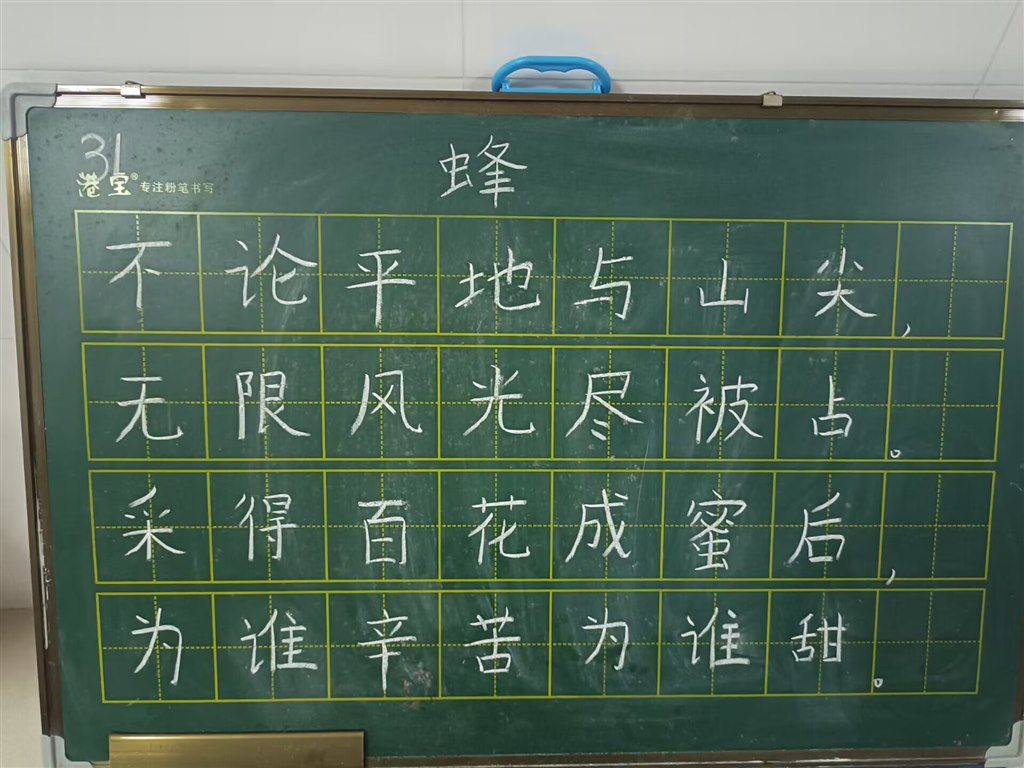 31
港宝® 专注粉笔书写
蜂
不论平地与山尖,
无限风光尽被占。
采得百花成蜜后,
为谁辛苦为谁甜。